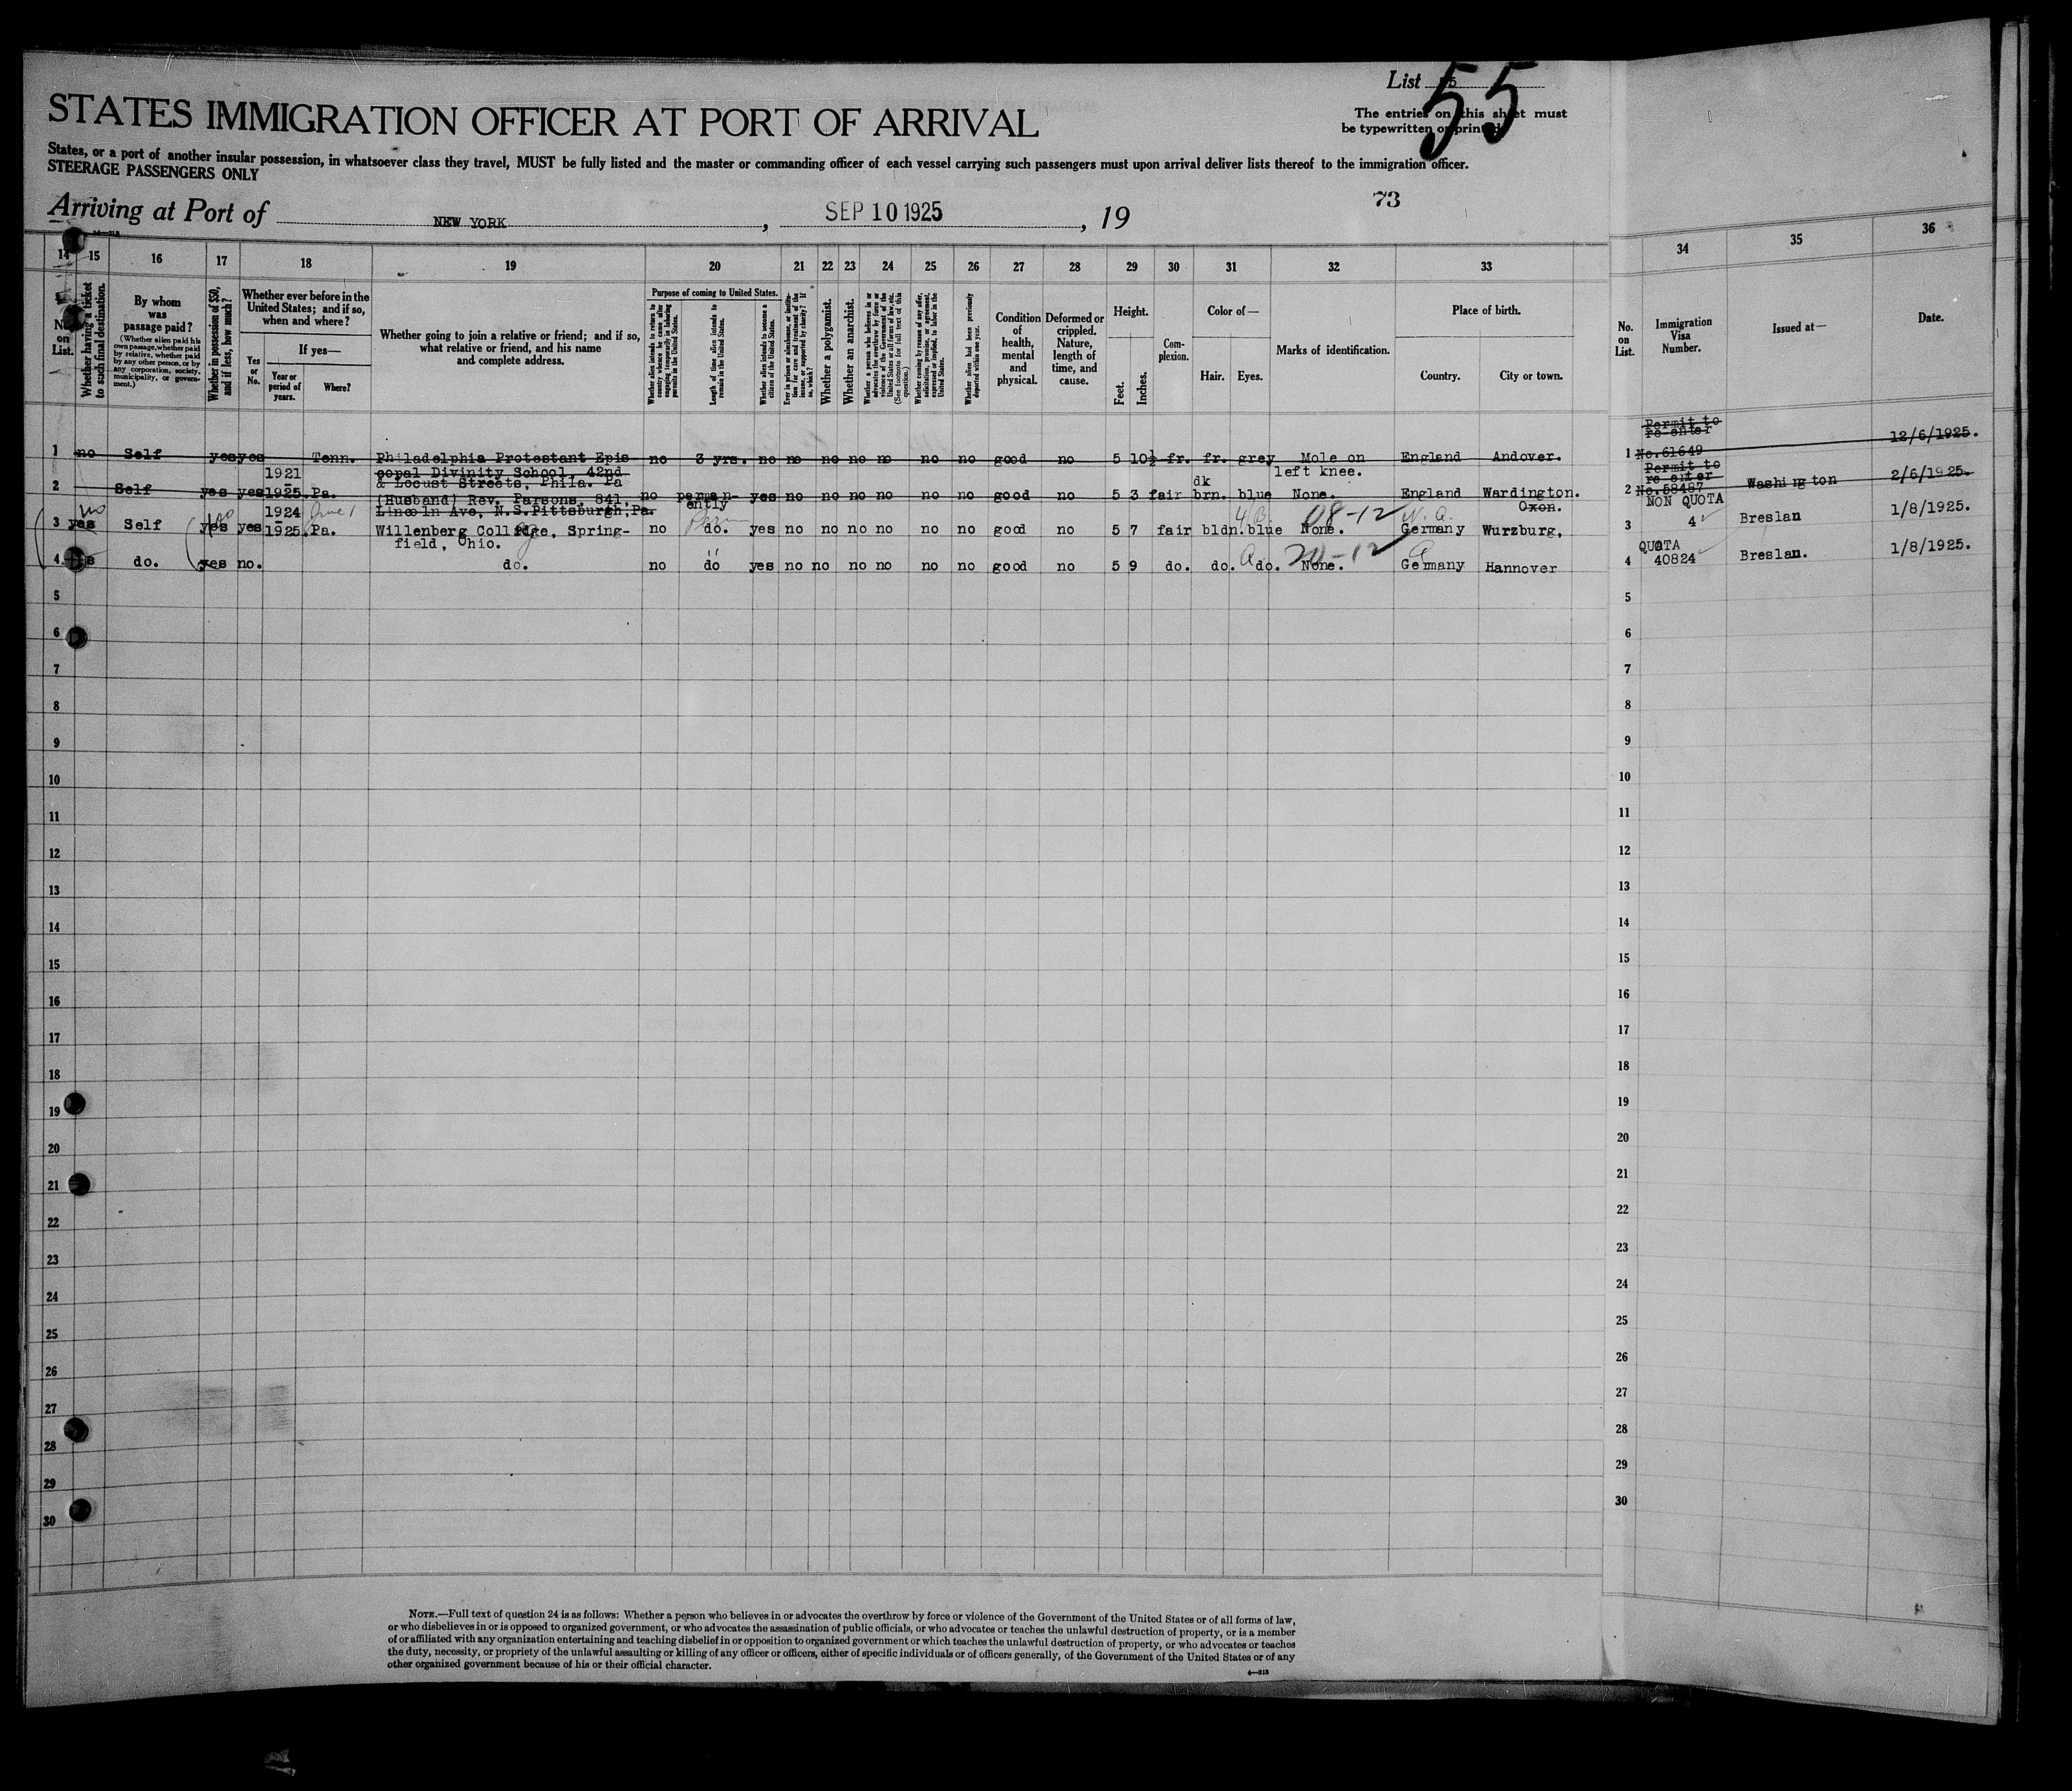 List 5
55
STATES IMMIGRATION OFFICER AT PORT OF ARRIVAL
The entries on this sheet must
be typewritten or printed.
States, or a port of another insular possession, in whatsoever class they travel, MUST be fully listed and the master or commanding officer of each vessel carrying such passengers must upon arrival deliver lists thereof to the immigration officer.
STEERAGE PASSENGERS ONLY
Arriving at Port of NEW YORK, SEP 10 1925, 19
73
14 15 16 17 18 19 20 21 22 23 24 25 26 27 28 29 30 31 32 33 34 35 36
No. on List.
Whether having a ticket to such final destination.
By whom was passage paid?
(Whether alien paid his own passage, whether paid by relative, whether paid by any other person, or by any corporation, society, municipality, or government.)
Whether in possession of $50, and if less, how much?
Whether ever before in the United States; and if so, when and where?
Yes or No.
If yes—
Year or period of years.
Where?
Whether going to join a relative or friend; and if so, what relative or friend, and his name and complete address.
Purpose of coming to United States.
Whether alien intends to return to country whence he came after engaging temporarily in laboring pursuits in the United States.
Length of time alien intends to remain in the United States.
Whether alien intends to become a citizen of the United States.
Ever in prison or almshouse, or institution for care and treatment of the insane, or supported by charity? If so, which?
Whether a polygamist.
Whether an anarchist.
Whether a person who believes in or advocates the overthrow by force or violence of the Government of the United States or all forms of law, etc. (See footnote for full text of this question.)
Whether coming by reason of any offer, solicitation, promise, or agreement, expressed or implied, to labor in the United States.
Whether alien had been previously deported within one year.
Condition of health, mental and physical.
Deformed or crippled. Nature, length of time, and cause.
Height.
Feet.
Inches.
Complexion.
Color of—
Hair. Eyes.
Marks of identification.
Place of birth.
Country. City or town.
No. on List.
Immigration Visa Number.
Issued at—
Date.
1 no Self yes yes Tenn. Philadelphia Protestant Epis- no 3 yrs. no no no no no no no good no 5 10½ fr. fr. grey Mole on England Andover. 1 Permit to re-enter No.61649 12/6/1925.
1921 copal Divinity School, 42nd left knee.
& Locust Streets, Phila. Pa
2 Self yes yes 1925. Pa. (Husband) Rev. Parsons, 841, no perman- yes no no no no no no good no 5 3 fair dk brn. blue None. England Wardington. 2 Permit to re enter No.58487 Washington 2/6/1925.
1924 Lincoln Ave, N.S.Pittsburgh,Pa. ently Oxon.
no
3 yes Self yes yes 1925. Pa. Willenberg College, Spring- no do. yes no no no no no no good no 5 7 fair bldn. blue None. Germany Wurzburg, 3 NON QUOTA 4 Breslan 1/8/1925.
08-12
field, Ohio.
4 do. yes no. do. no do yes no no no no no no good no 5 9 do. do. do. None. Germany Hannover 4 QUOTA 40824 Breslan. 1/8/1925.
20-12
5 5
6 6
7 7
8 8
9 9
10 10
11 11
12 12
13 13
14 14
15 15
16 16
17 17
18 18
19 19
20 20
21 21
22 22
23 23
24 24
25 25
26 26
27 27
28 28
29 29
30 30
NOTE.—Full text of question 24 is as follows: Whether a person who believes in or advocates the overthrow by force or violence of the Government of the United States or of all forms of law,
or who disbelieves in or is opposed to organized government, or who advocates the assassination of public officials, or who advocates or teaches the unlawful destruction of property, or is a member
of or affiliated with any organization entertaining and teaching disbelief in or opposition to organized government or which teaches the unlawful destruction of property, or who advocates or teaches
the duty, necessity, or propriety of the unlawful assaulting or killing of any officer or officers, either of specific individuals or of officers generally, of the Government of the United States or of any
other organized government because of his or their official character.